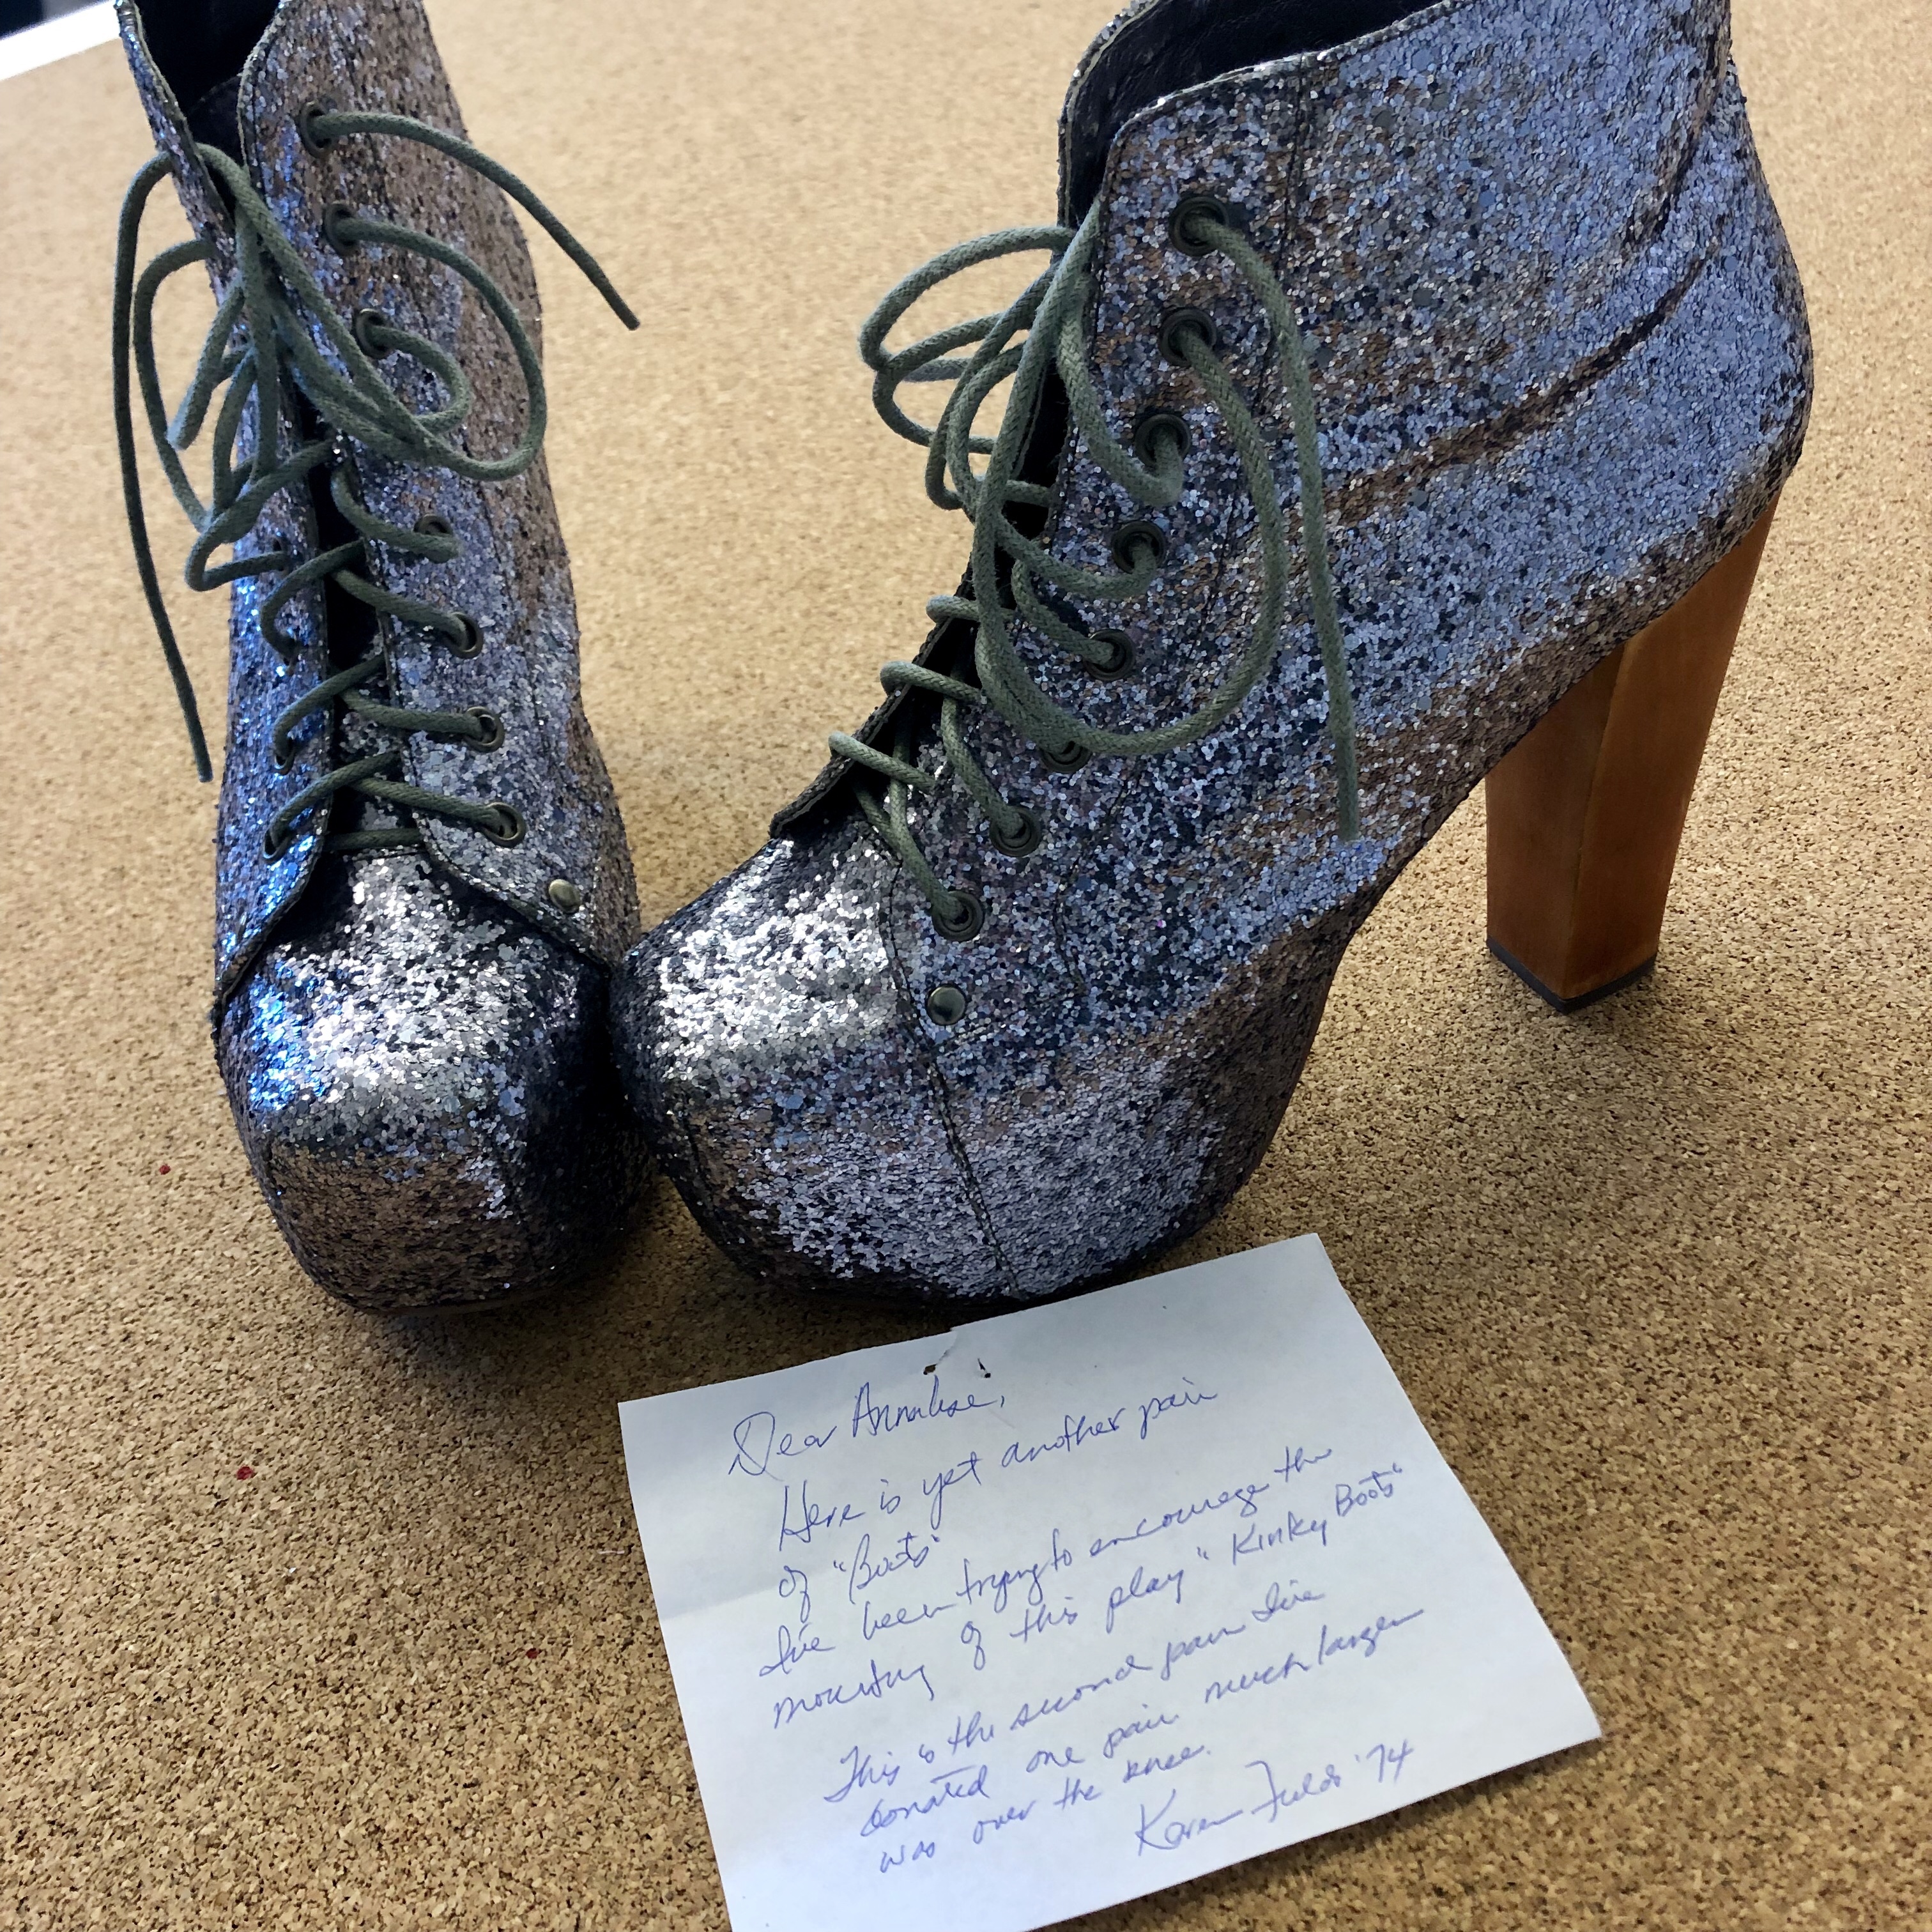 Dear Annalise,
Here is yet another pair
of "Boots"
I've been trying to encourage the
mounting of this play "Kinky Boots"
This is the second pair I've
donated one pair much larger
was over the knee.
Karen Fields '74